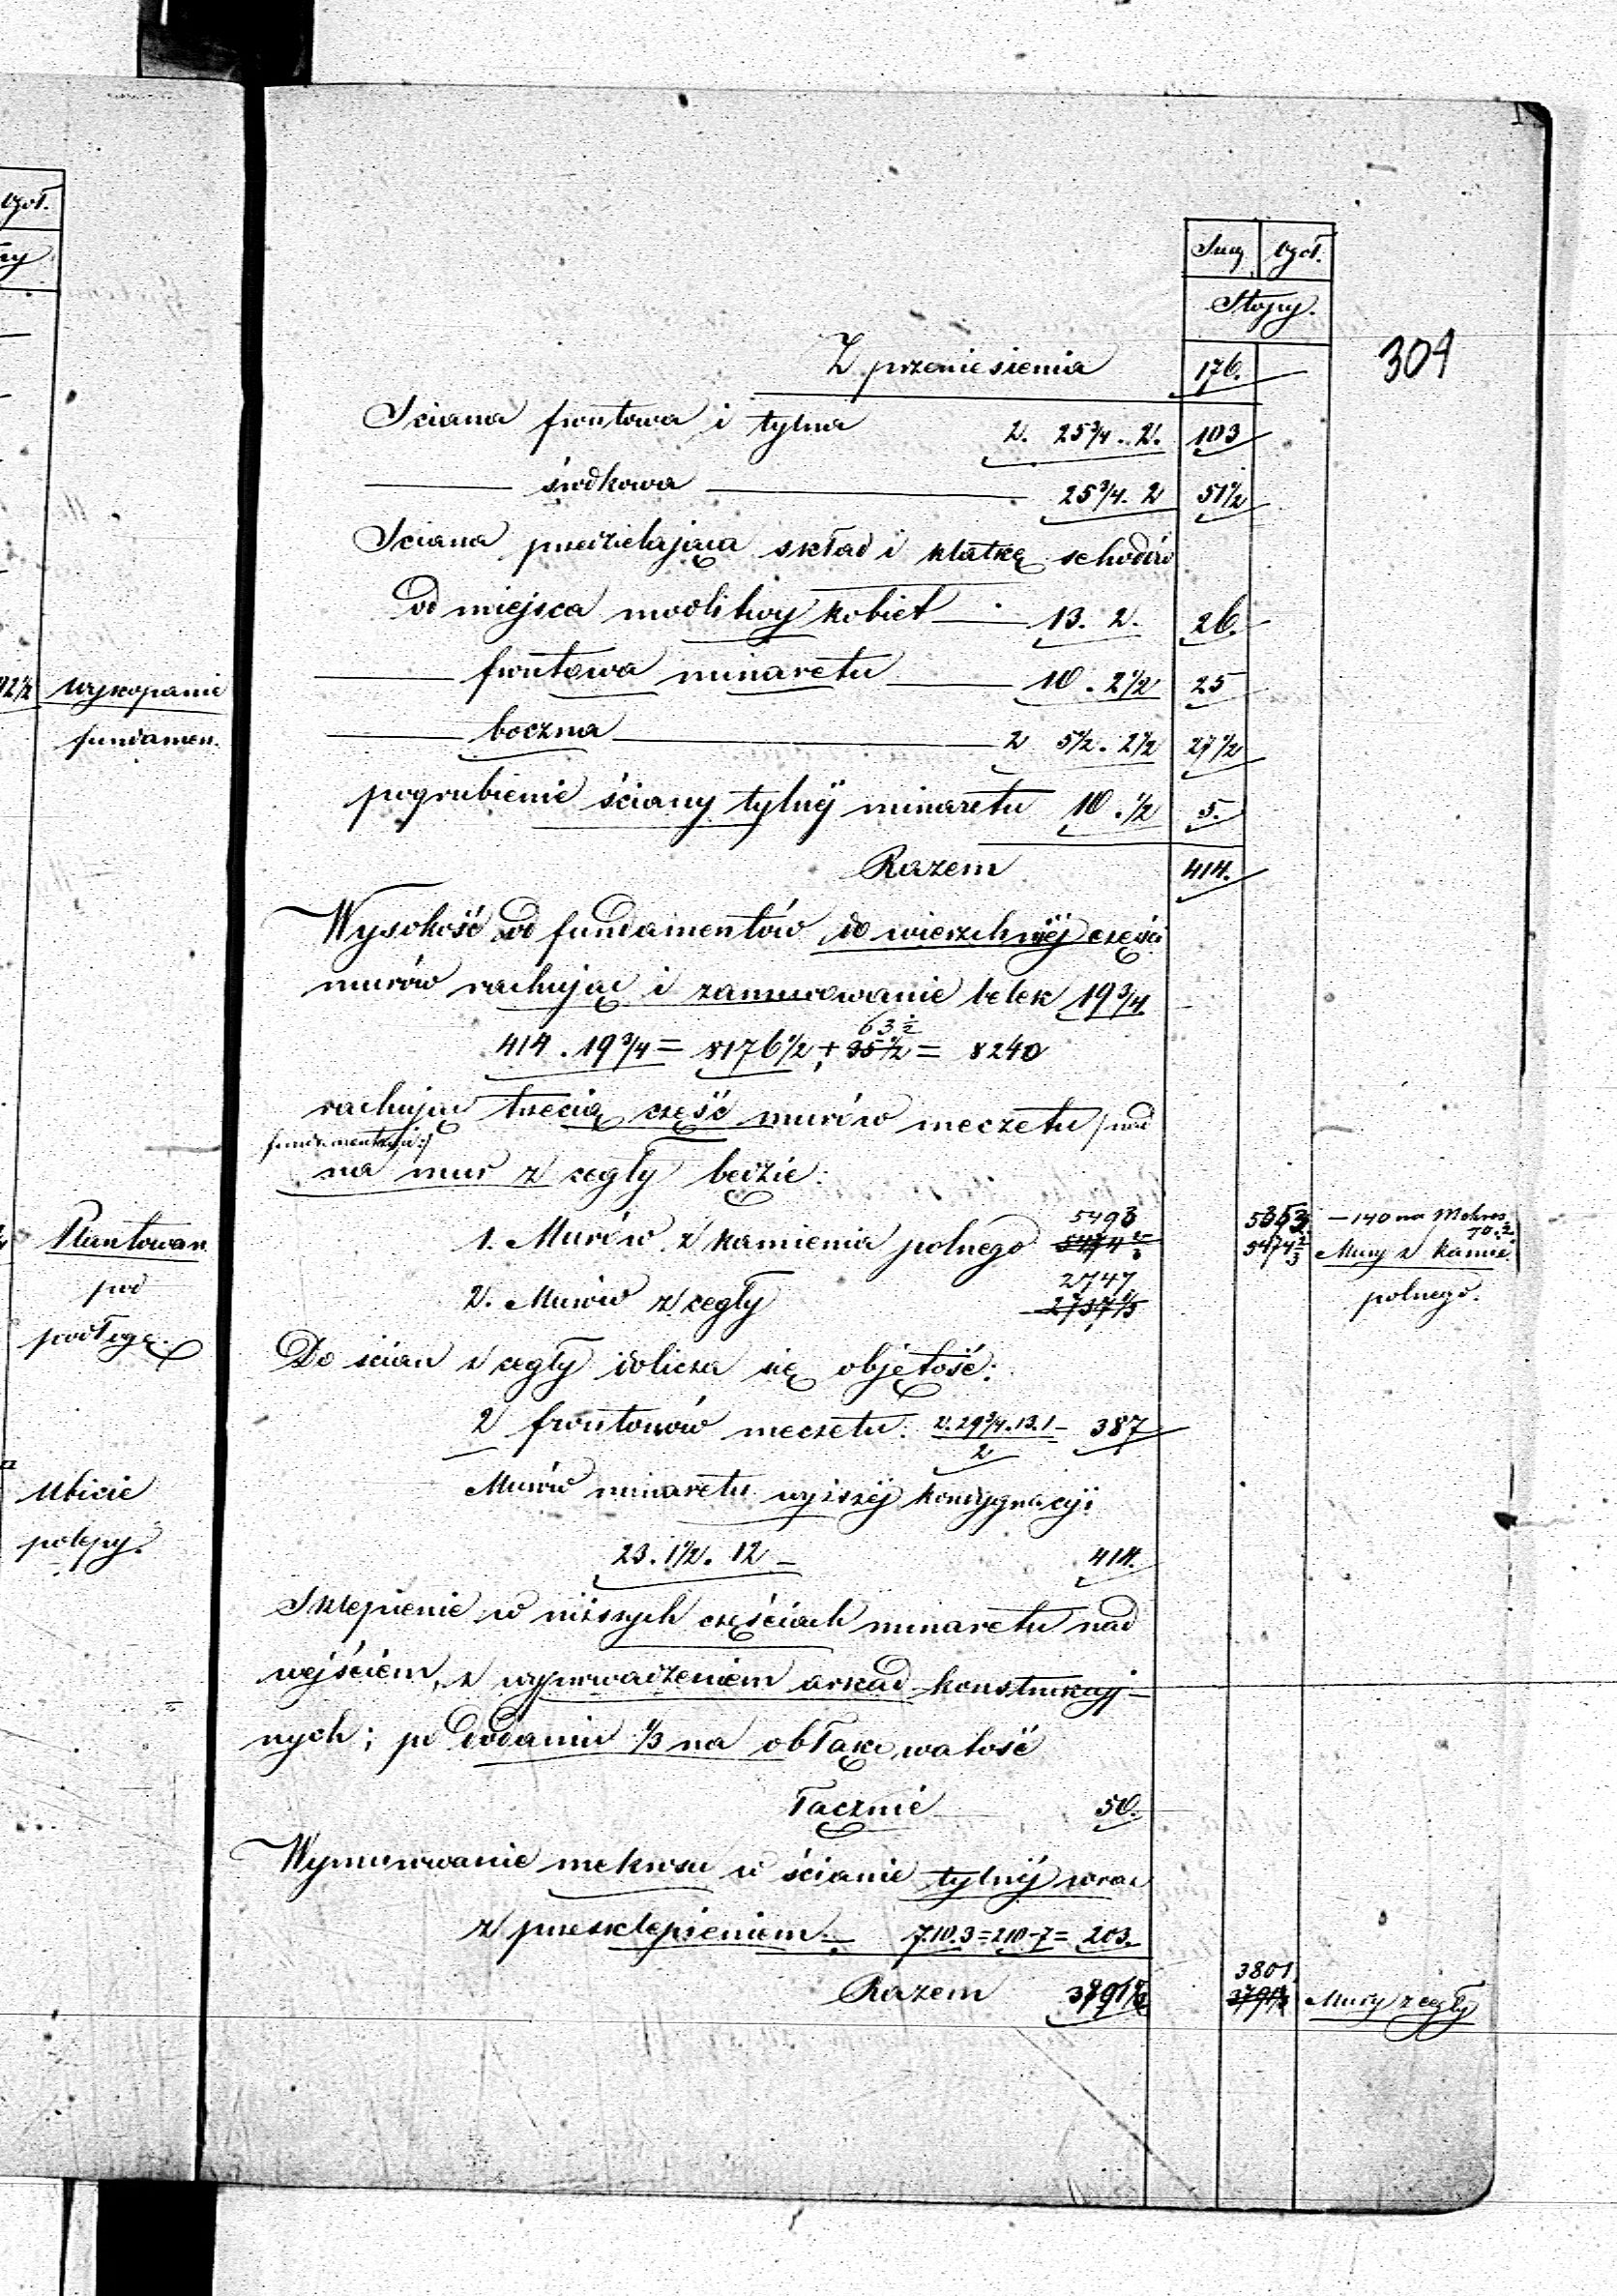 ogół.
92½ Wykopanie
fundamen.
Plantowan.
pod
podłogę.
Ubicie
polepy.
Szcz ogół.
Stopy.
304
Z przeniesienia 176.
Sciana frontowa i tylna 2. 25¾. 2. 103
— środkowa — 25¾. 2 51½
Sciana przedzielająca skład i klatkę schodów
od miejsca modlitwy kobiet — 13. 2. 26.
— frontowa minaretu — 10. 2½ 25
— boczna — 2 5½. 2½ 27½
pogrubienie ściany tylnéj minaretu 10. ½ 5.
Razem 414.
Wysokość od fundamentów do wierzchniéj części
murów rachując i zamurowanie belek 19¾.
63½
414. 19¾ = 8176½ + 35½ = 8240
rachując trzecią część murów meczetu /nad
fundamentami:/
na mur z cegły będzie:
5493 5353 — 140 na Mehros
70.2.
1. Murów z kamienia polnego 5474⅔ 5474⅔ Mury z kamie.
polnego.
2747
2. Murów z cegły 2737⅓
Do ścian z cegły dolicza się objętość:
2 frontonów meczetu: 2. 29¾. 13. 1 — 387
2
Murów minaretu wyższéj kondygnacyi
23. 1½. 12 — 414.
Sklepienie w niższych częściach minaretu nad
wejściem, z wyprowadzeniem arkad konstrukcyj-
nych; po dodaniu ⅓ na obłąkowatość
łącznie 50.
Wymurowanie mehrosu w ścianie tylnéj wraz
z przesklepieniem — 7.10.3 = 210 - 7 = 203.
3801
Razem 3791⅓ 3791⅓ Mury z cegły